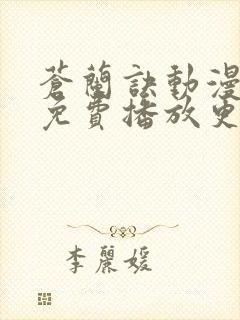 蒼蘭訣動漫
免費播放更
李麗媛